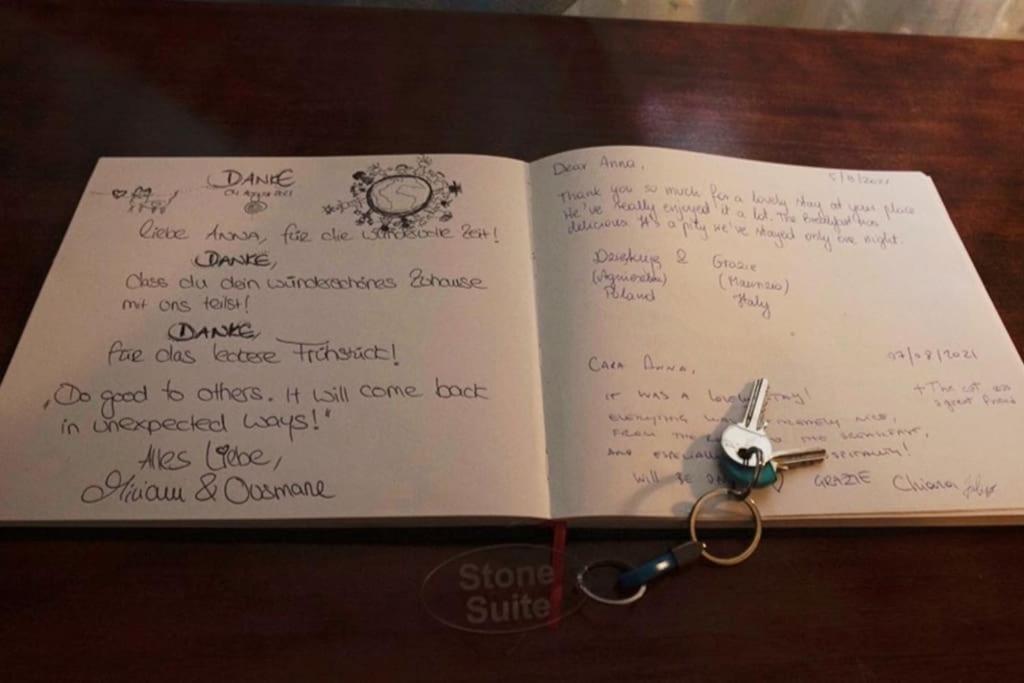 DANKE
04. August 2021
Liebe ANNA, für die wundervolle Zeit!
DANKE,
dass du dein wunderschönes Zuhause
mit ons teilst!
DANKE,
für das leckere Frühstück!
„Do good to others. It will come back
in unexpected ways!"
Alles Liebe,
Miriam & Ousmane
Dear Anna,
5/8/2021
Thank you so much for a lovely stay at your place
We've really enjoyed it a lot. The Breakfast was
delicious. It's a pity we've stayed only one night.
Dziękuję & Grazie
(Agnieszka) (Maurizio)
Poland Italy
07/08/2021
CARA ANNA,
+ The cat was
a great friend
IT WAS A LOVELY STAY!
EVERYTHING WAS EXTREMELY NICE,
FROM THE TO THE BREAKFAST,
AND ESPECIALLY HOSPITALITY!
WILL BE GRAZIE Chiara
Stone
Suite